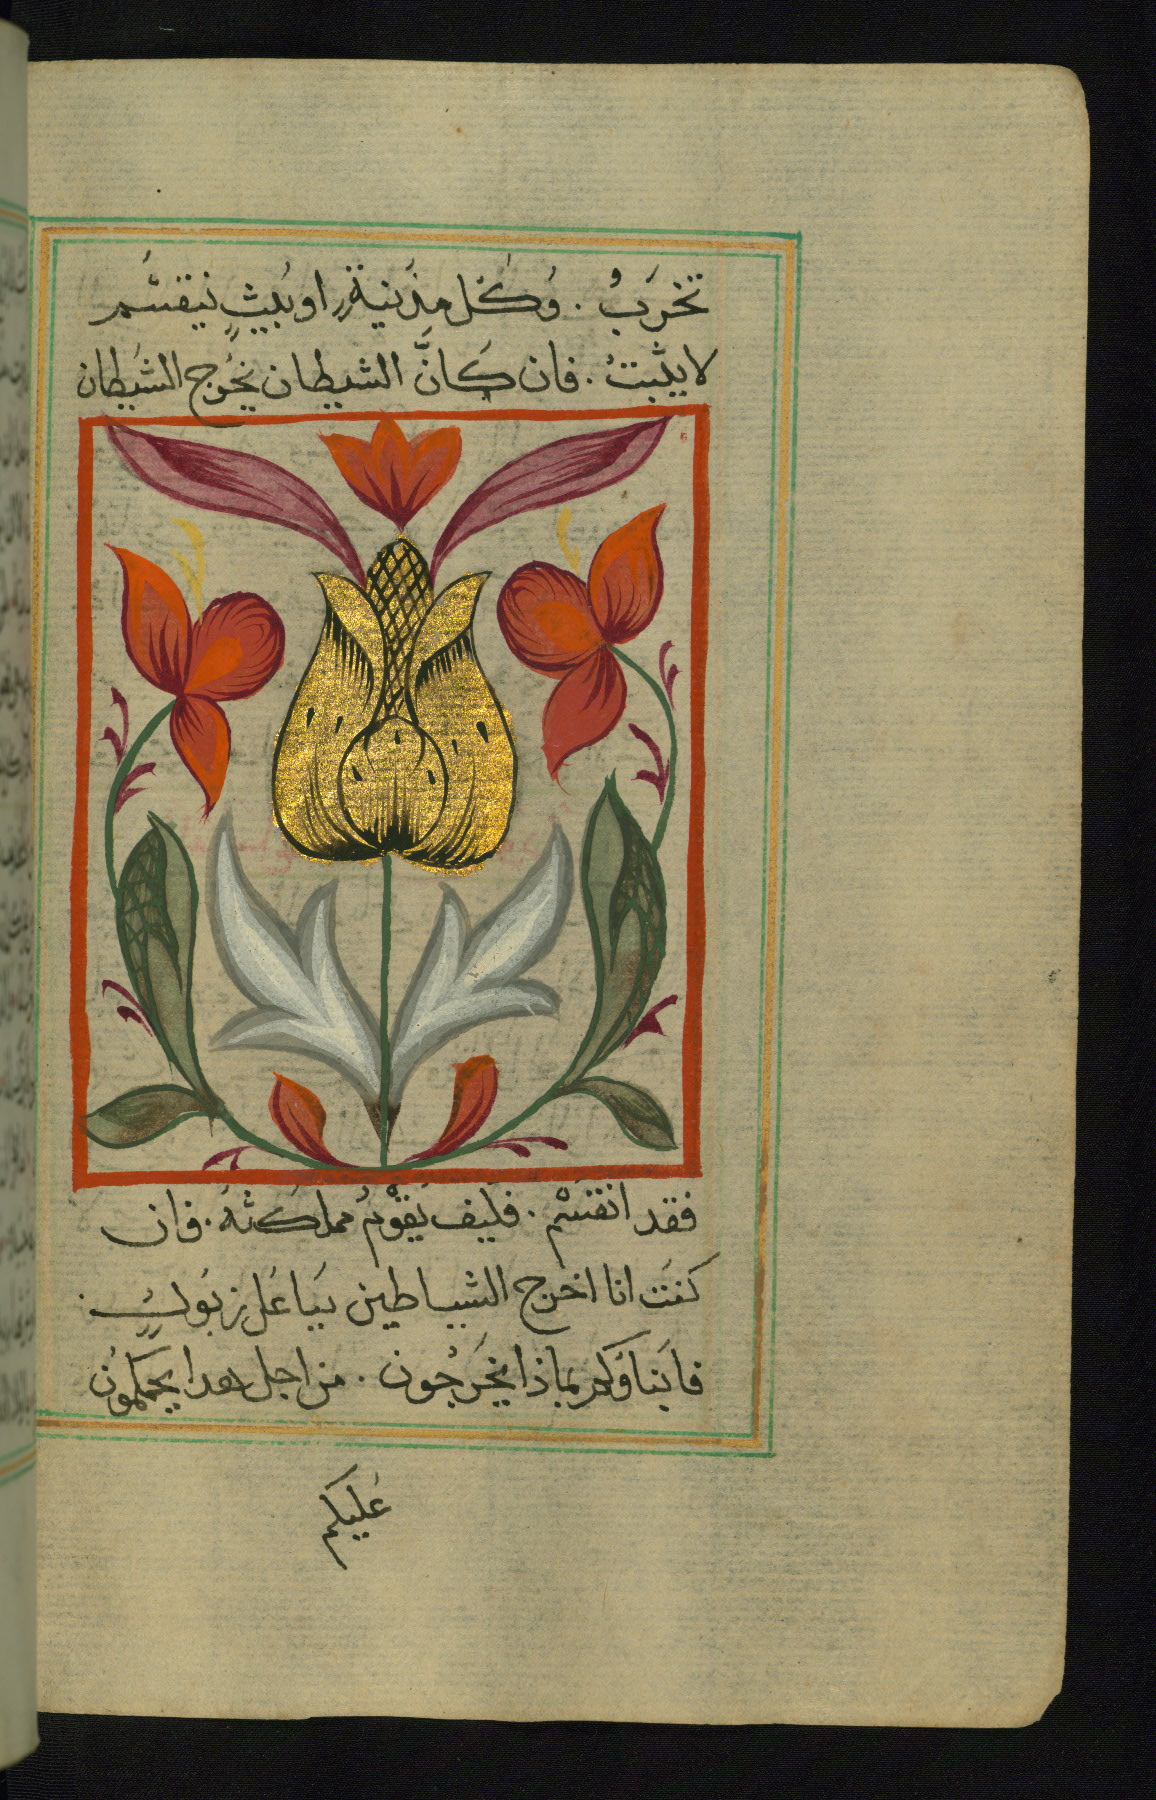 تخرَبُ . وَكُل مدَينةٍ او بَيتٍ ينقسَّم
لا يثَبتُ . فان كَانَّ الشيطان يخُرج الشَيطان
فقد انقسَمْ . فكيف يَقوْمُ مملكَتهُ . فان
كنتَ انا اخرج الشياطين ببَاعَل زبَولَ .
فابَناوكَم بماذا يخَرجُون . من اجل هدا يحَكمُون
عَليكم